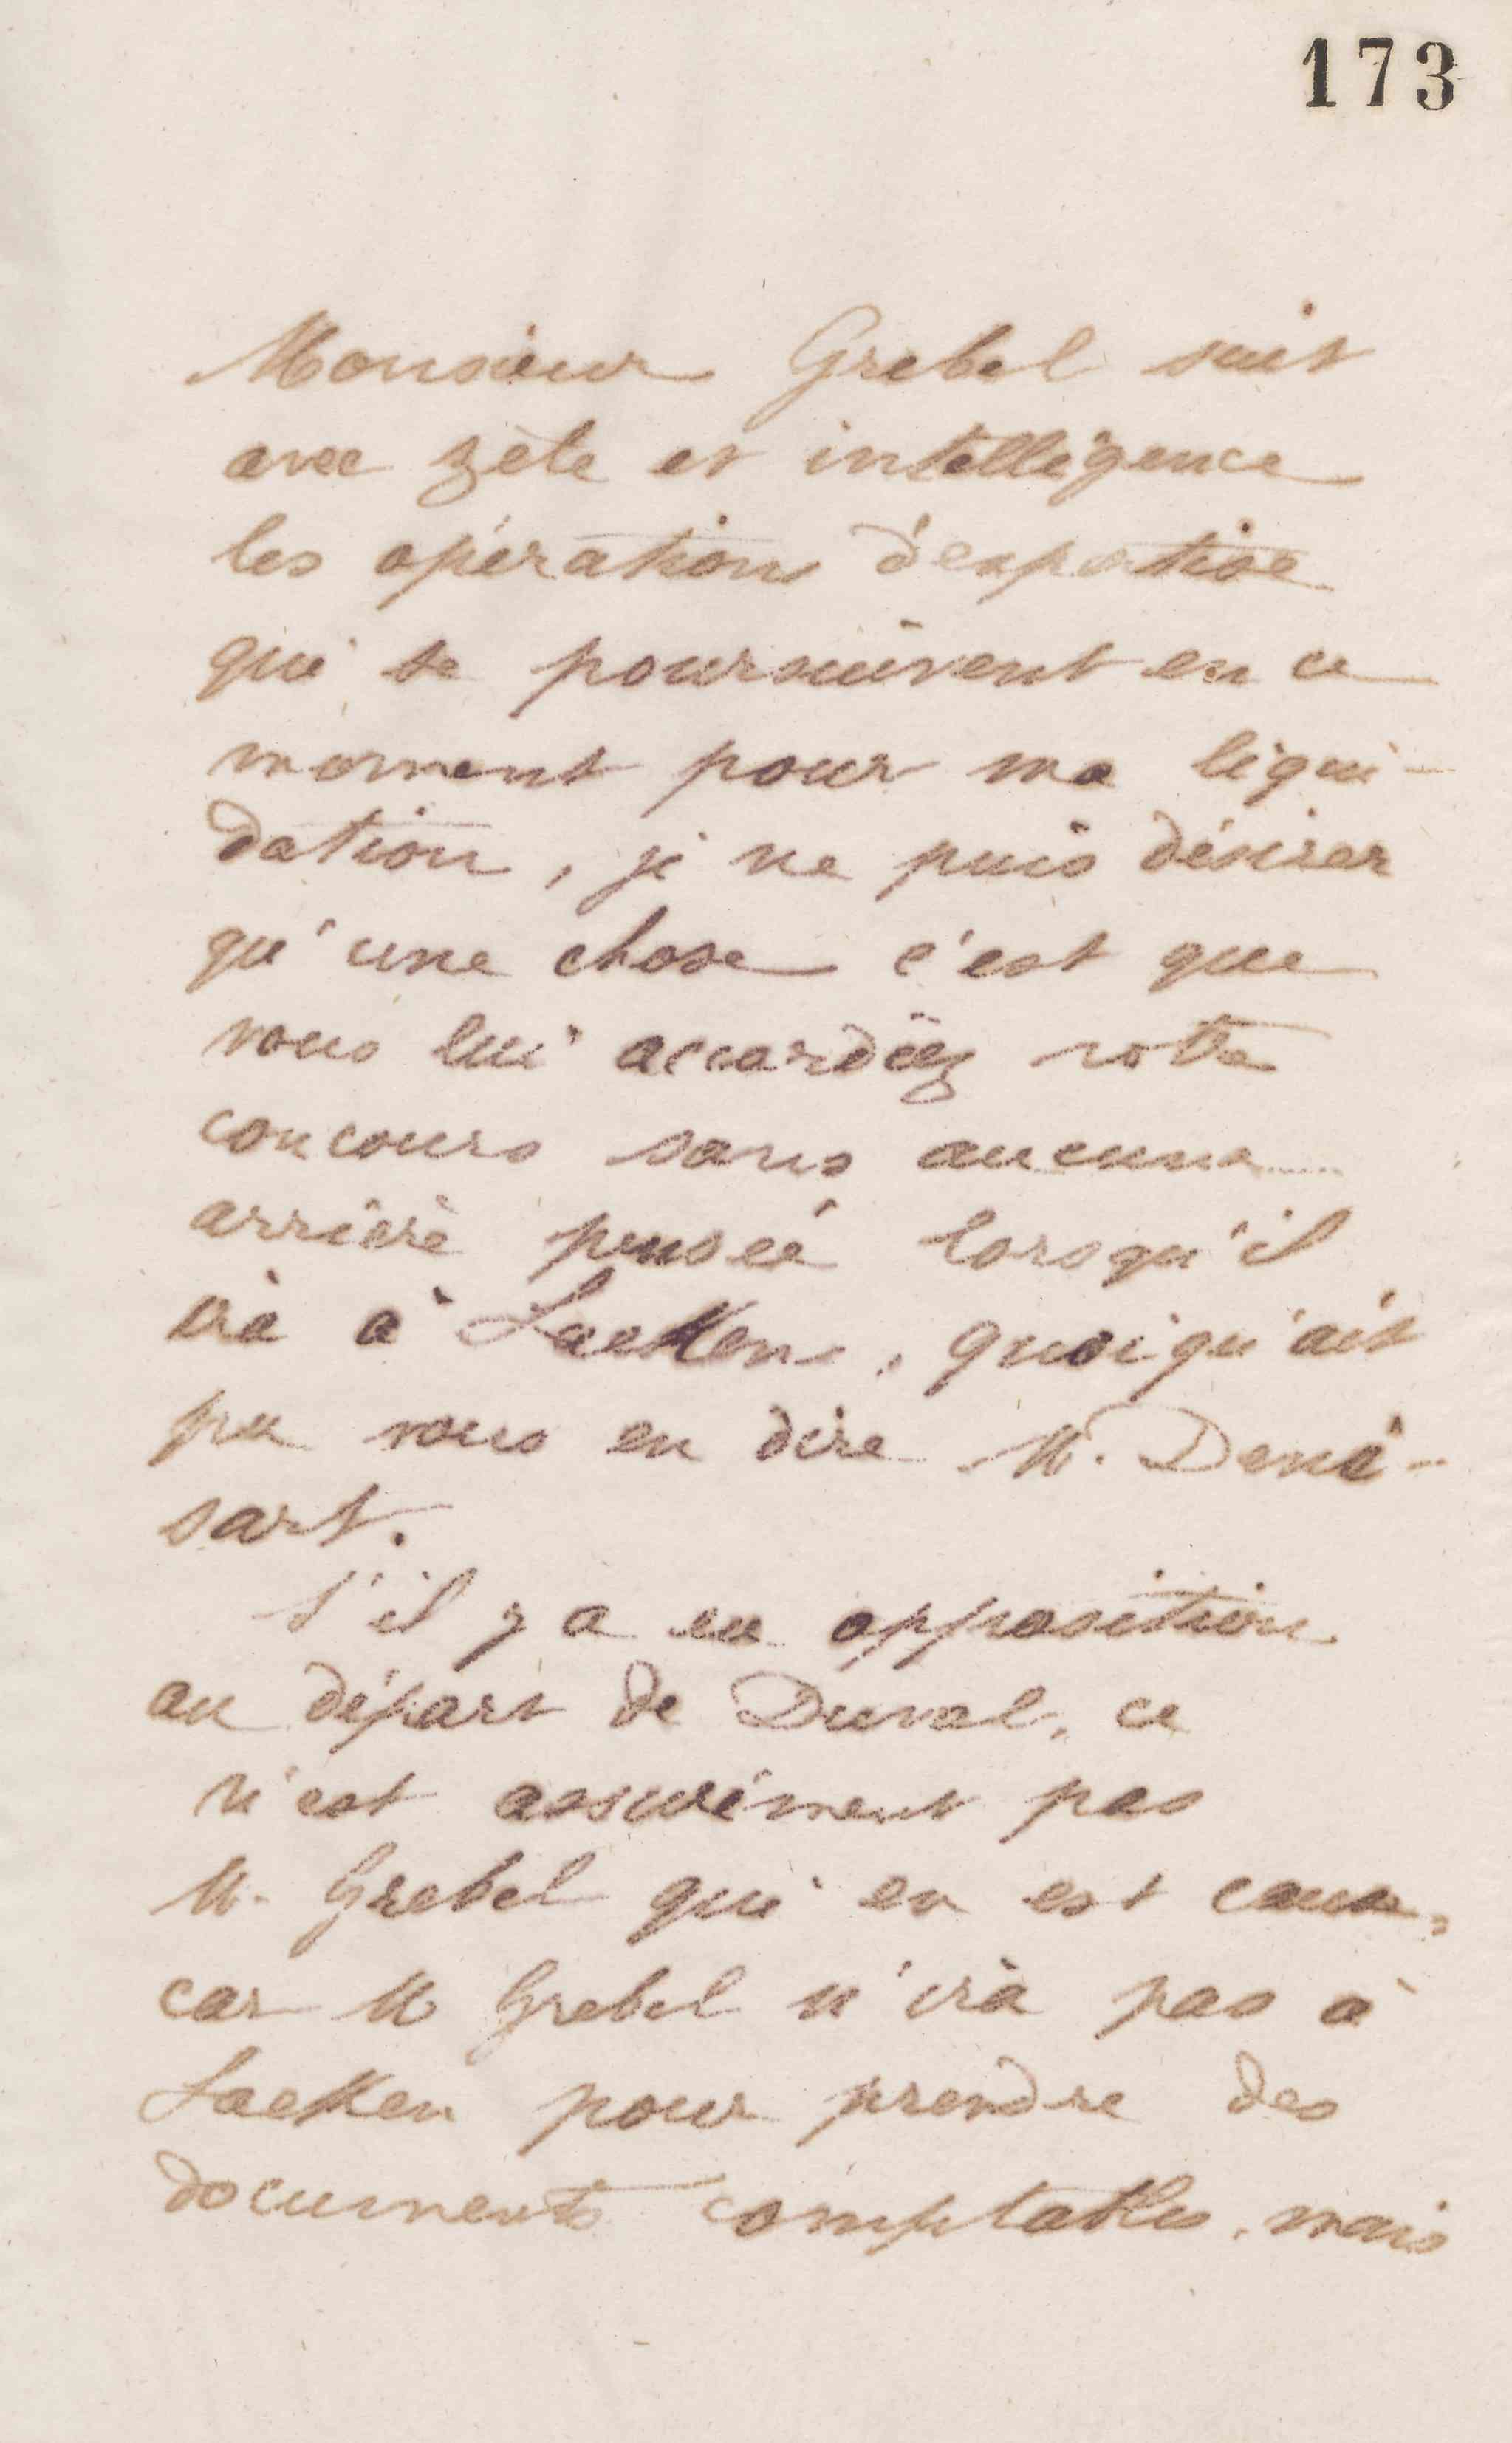 173
Monsieur Grebel suit
avec zèle et intelligence
les opérations d'expertise
qui se poursuivent en ce
moment pour ma liqui-
dation, je ne puis désirer
qu'une chose c'est que
vous lui accordiez votre
concours sans aucune
arrière pensée lorsqu'il
ira à Laeken, quoiqu'ait
pu vous en dire M. Dené-
sart.
S'il y a eu opposition
au départ de Duval, ce
n'est assurément pas
M. Grebel qui en est cause,
car M Grebel n'ira pas à
Laeken pour prendre des
documents comptables, mais